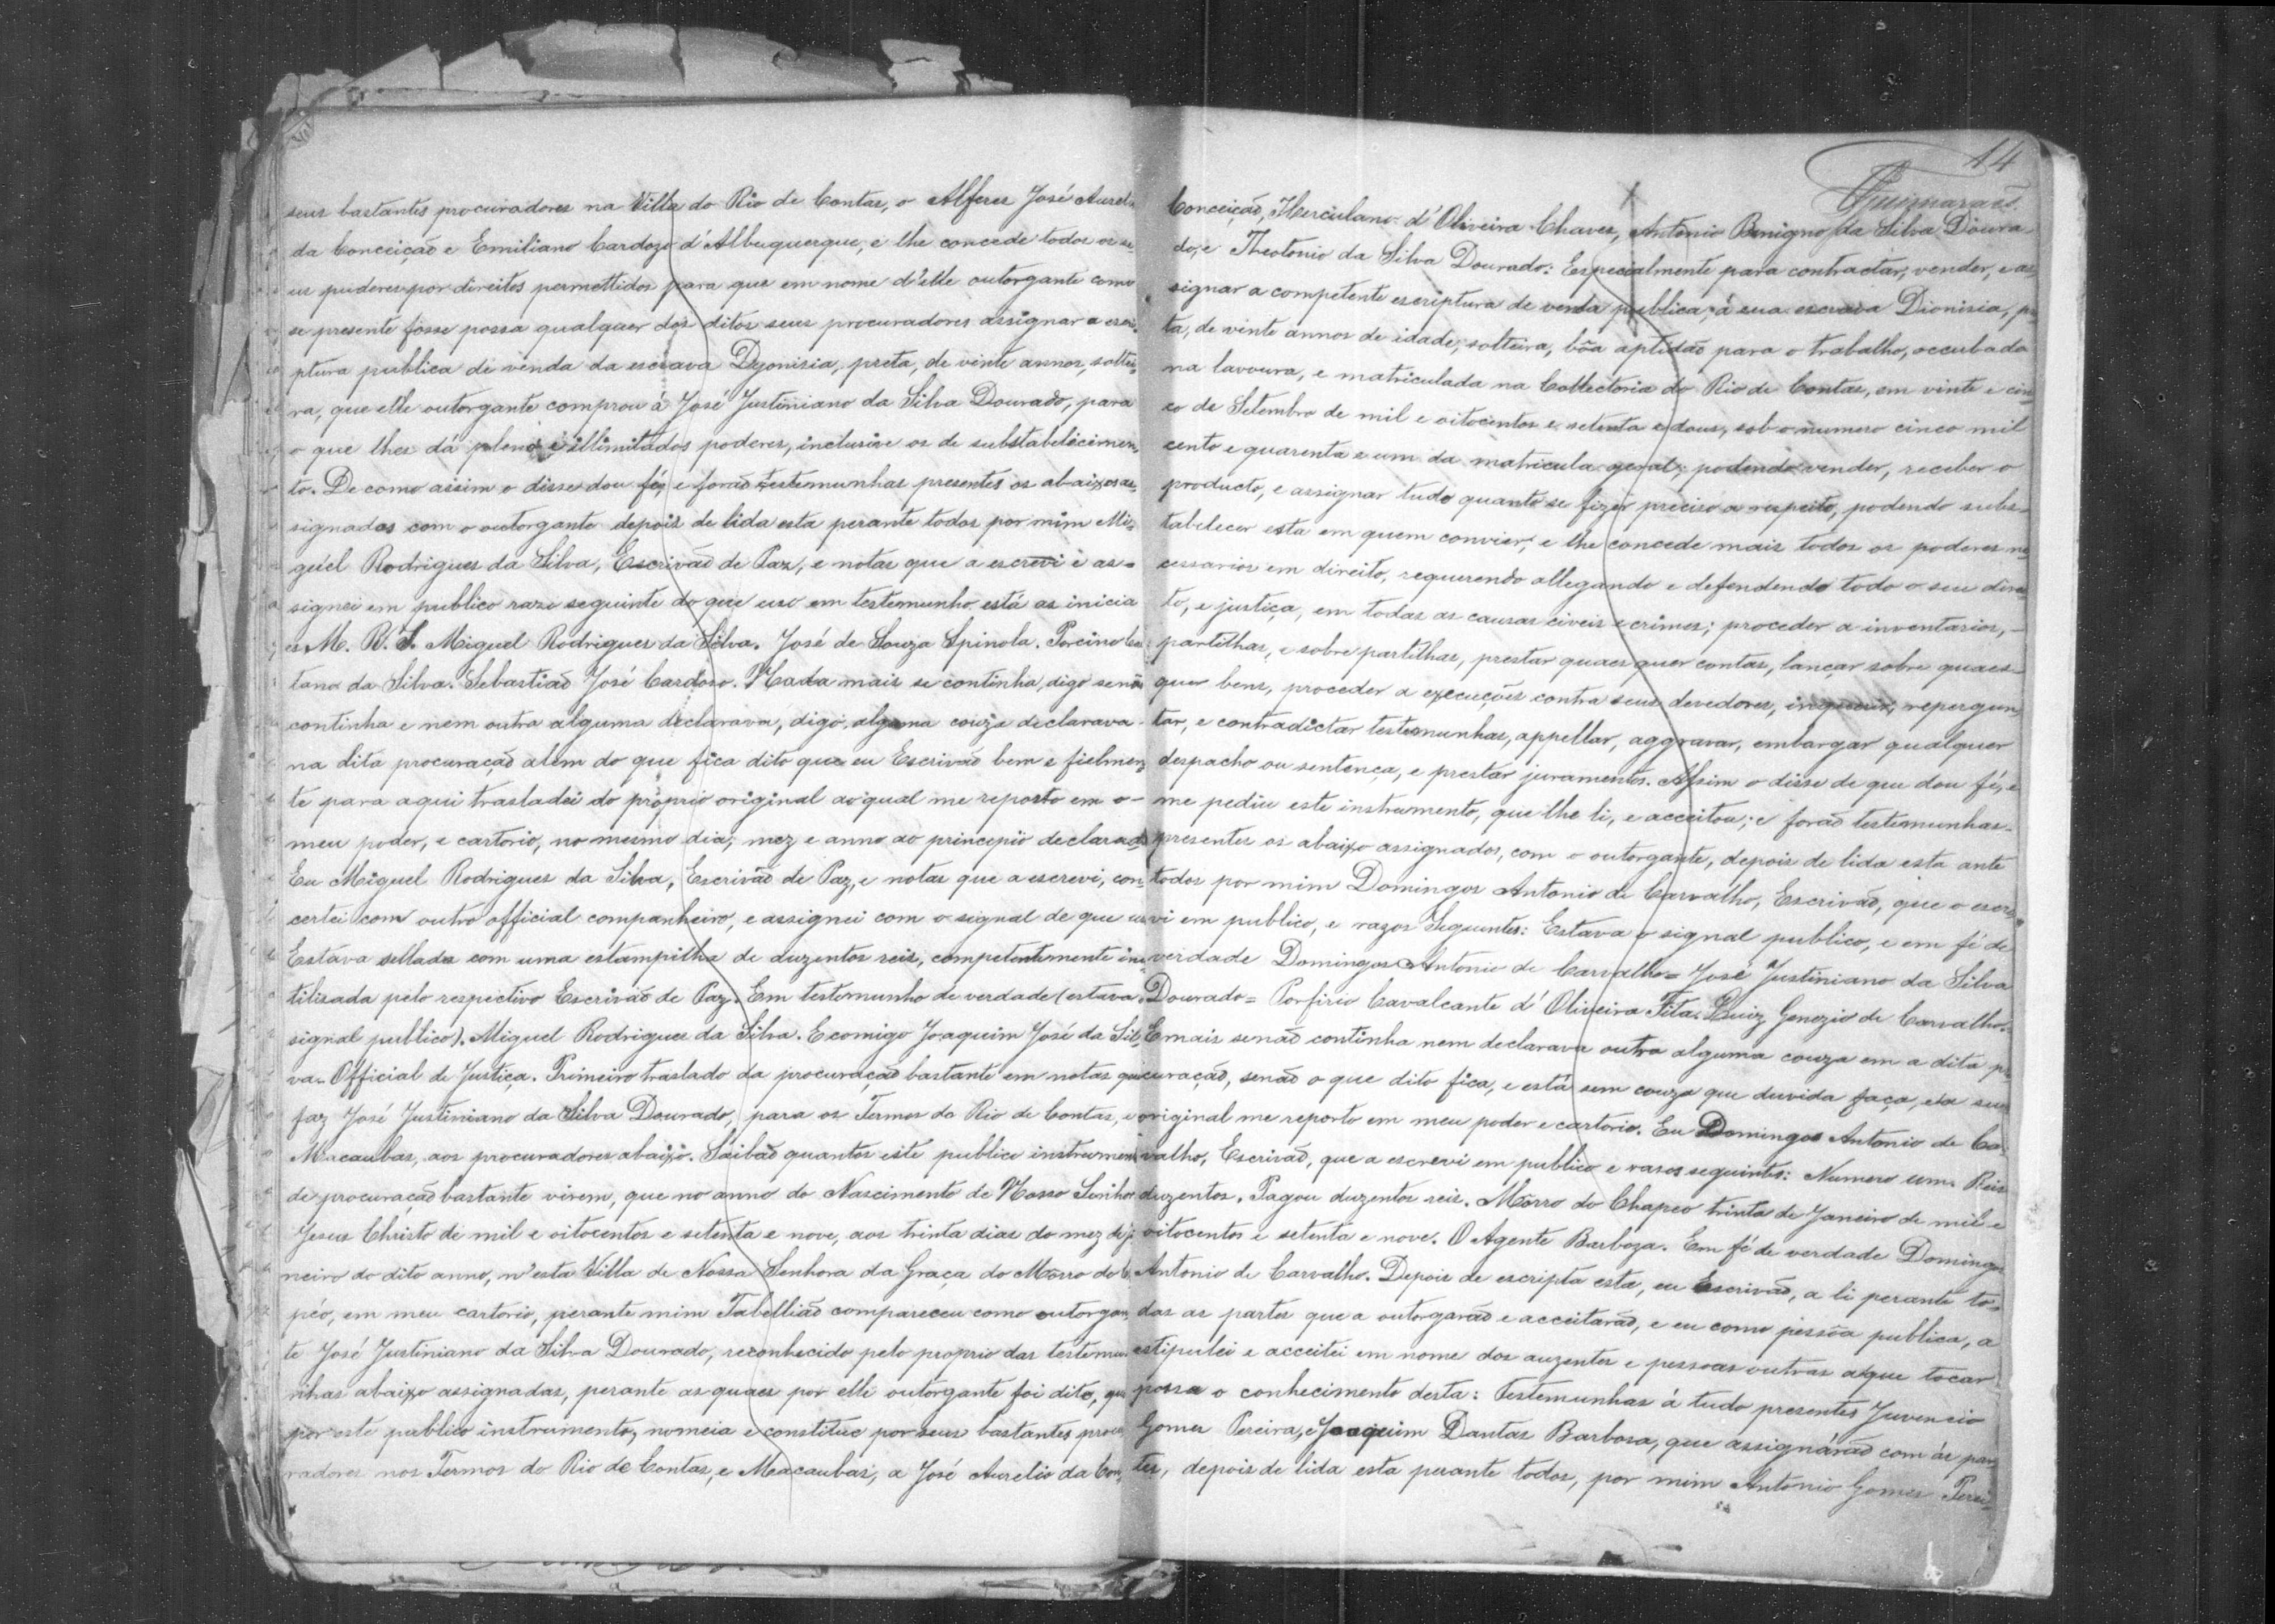 seus bastantes procuradores na Villa do Rio de Contas, o Alferes José Aurel.
da Conceição e Emiliano Cardozo d'Albuquerque, e lhe concede todos os se-
us puderes por direitos permettidos para que em nome d'elle outorgante como
se presente fosse possa qualquer dos ditos seus procuradores assignar a escri-
ptura publica de venda da escrava Dyonisia, preta, de vinte annos, soltei-
ra, que elle outorgante comprou á José Justiniano da Silva Dourado, para
o que lhes dá plenos e illimitados poderes, inclusive os de substabelecimen-
to. De como assim o disse dou fé, e forão testemunhas presentes os abaixo as-
signados com o outorgante depois de lida esta perante todos por mim Mi-
guel Rodrigues da Silva, Escrivão de Paz, e notas que a escrevi e as-
signei em publico razo seguinte do que uso em testemunho está as inicia
es M. R. S. Miguel Rodrigues da Silva. José de Souza Spinola. Porcino Cae
tano da Silva. Sebastião José Cardoso. Nada mais se continha, digo senão
continha e nem outra alguma declarava, digo, alguma couza declarava
na dita procuração alem do que fica dito que eu Escrivão bem e fielmen-
te para aqui trasladei do proprio original ao qual me reposto em o-
meu poder, e cartorio, no mesmo dia, mez e anno ao principio declarado
Eu Miguel Rodrigues da Silva, Escrivão de Paz, e notas que a escrevi, con-
certei com outro official companheiro, e assignei com o signal de que us
Estava sellada com uma estampilha de duzentos reis, competentemente inu-
tilisada pelo respectivo Escrivão de Paz. Em testemunho de verdade (estava o
signal publico). Miguel Rodrigues da Silva. E comigo Joaquim José da Sil-
va. Official de Justiça. Primeiro traslado da procuração bastante em notas que
faz José Justiniano da Silva Dourado, para os Termos do Rio de Contas, e
Macaubas, aos procuradores abaixo. Saibão quantos este publico instrumen
de procuração bastante virem, que no anno do Nascimento de Nosso Senhor
Jesus Christo de mil e oitocentos e setenta e nove, aos trinta dias do mez de Ja
neiro do dito anno, n'esta Villa de Nossa Senhora da Graça do Môrro do C
péo, em meu cartorio, perante mim Tabellião compareceu como outorgan
te José Justiniano da Silva Dourado, reconhecido pelo proprio das testemu
nhas abaixo assignadas, perante as quaes por elle outorgante foi dito, que
por este publico instrumento, nomeia e constitue por seus bastantes procu
radores nos Termos do Rio de Contas, e Macaubas, a José Aurelio da Con-
14
Guimarães.
Conceição, Herculano d'Oliveira Chaves, Antonio Benigno da Silva Doura
do, e Theotonio da Silva Dourado: Especialmente para contractar, vender, e as
signar a competente escriptura de venda publica, á sua escrava Dionisia, pre
ta, de vinte annos de idade, solteira, bôa aptidão para o trabalho, occubada
na lavoura, e matriculada na Collectoria do Rio de Contas, em vinte e cin
co de Setembro de mil e oitocentos e setenta e dous, sob o numero cinco mil
cento e quarenta e um da matricula geral; podendo vender, receber o
producto, e assignar tudo quanto se fizer preciso a respeito, podendo subs-
tabelecer esta em quem convier, e lhe concede mais todos os poderes ne
cessarios em direito, requerendo allegando e defendendo todo o seu direi
to, e justiça, em todas as causas civeis e crimes; proceder a inventarios, -
partilhas, e sobre partilhas, prestar quaes quer contas, lançar sobre quaes-
quer bens, proceder a execuções contra seus devedores, inquerir, repergun
tar, e contradictar testemunhas, appellar, aggravar, embargar qualquer
despacho ou sentença, e prestar juramentos. Assim o disse de que dou fé, e
me pediu este instrumento, que lhe li, e acceitou; e forão testemunhas-
presentes os abaixo assignados, com o outorgante, depois de lida esta ante
todos por mim Domingos Antonio de Carvalho, Escrivão, que o escre
vi em publico, e razos Seguintes: Estava o signal publico, e em fé de
verdade Domingos Antonio de Carvalho= José Justiniano da Silva
Dourado= Porfirio Cavalcante d'Oliveira Tita. Luiz Genezio de Carvalho.
E mais senão continha nem declarava outra alguma couza em a dita pro
curação, senão o que dito fica, e está sem couza que duvida faça, e a seu
original me reporto em meu poder e cartorio. Eu Domingos Antonio de Car
valho, Escrivão, que a escrevi em publico e rasos seguintes: Numero um. Reis
duzentos. Pagou duzentos reis. Môrro do Chapeo trinta de Janeiro de mil e
oitocentos e setenta e nove. O Agente Barboza. Em fé de verdade Domingos
Antonio de Carvalho. Depois de escripta esta, eu Escrivão, a li perante to-
das as partes que a outorgarão e acceitarão, e eu como pessôa publica, a
estipulei e acceitei em nome dos auzentes e pessoas outras a que tocar
possa o conhecimento desta: Testemunhas á tudo presentes Juvencio
Gomes Pereira, e Joaquim Dantas Barbosa, que assignárão com ás par
tes, depois de lida esta perante todos, por mim Antonio Gomes Perei-